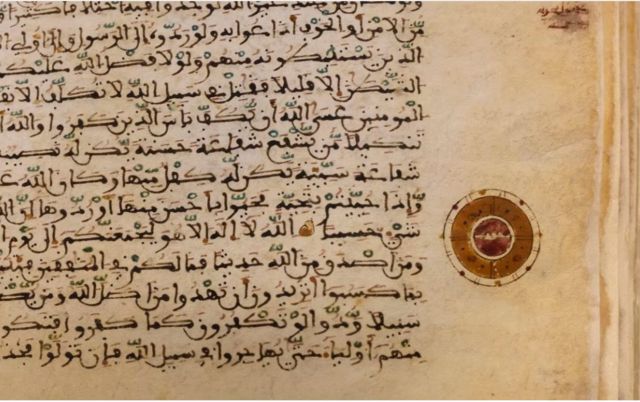 غير الله لوجدوا فيه اختلافا كثيرا
مّن الامن أو الخوف أذاعوا به ولو ردّوه إلى الرّسول وإلى أولي
الذين يستنبطونه منهم ولولا فضل الله عليكم
الشّيطن إلّا قليلا فقتل في سبيل الله لا تكلّف إلّا
المومنين عسى الله أن يّكفّ بأس الّذين كفروا والله
تنكيلا مّن يّشفع شفاعة حسنة يّكن لّه نصيب
شفاعة سيّئة يّكن لّه كفل مّنها وكان الله
وإذا حيّيتم بتحيّة فحيّوا بأحسن منها أو ردّوها إنّ
شيء حسيبا الله لا إله إلّا هو ليجمعنّكم إلى يوم
ومن اصدق من الله حديثا فما لكم في المنفقين
بما كسبوا أتريدون أن تهدوا من اضلّ الله ومن يّضلل
سبيلا ودّوا لو تكفرون كما كفروا فتكونوا
منهم أولياء حتّى يهاجروا في سبيل الله فإن تولّوا